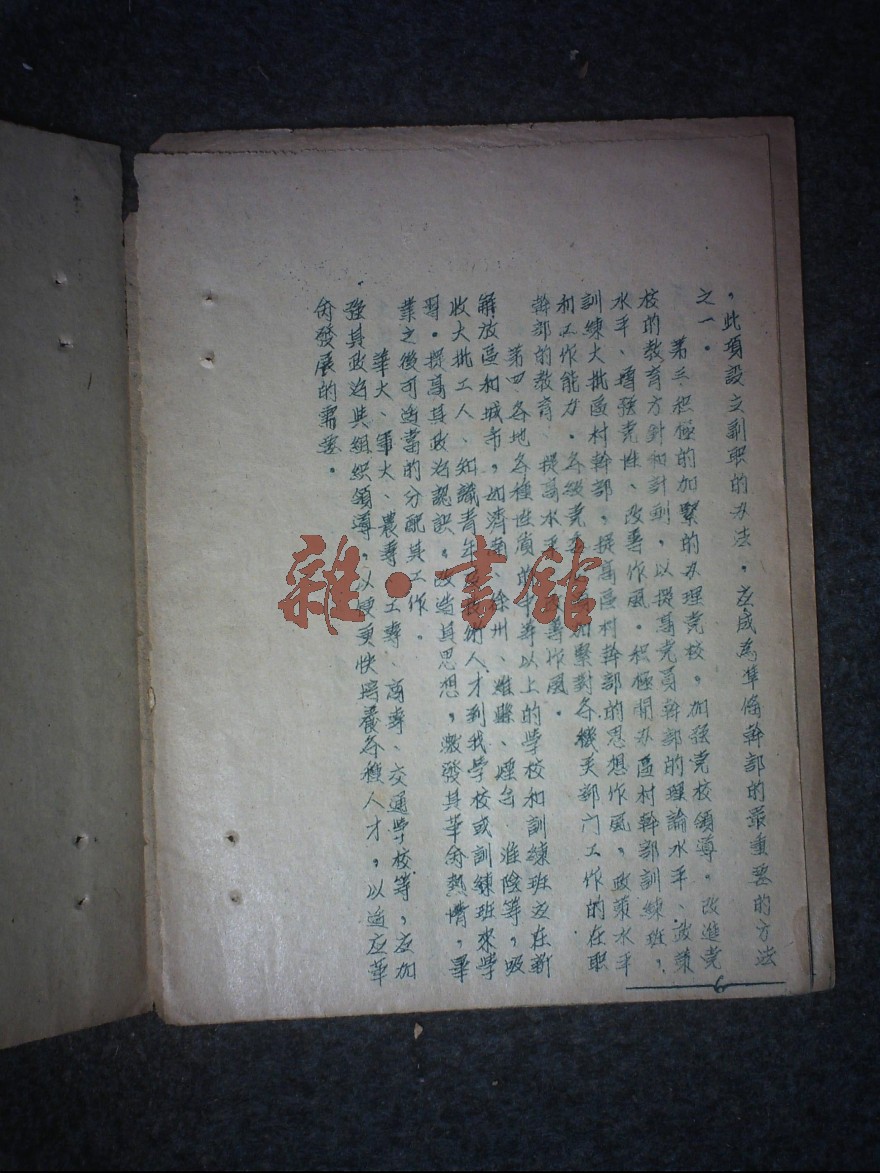 ，此項設立副职的办法，应成為準备幹部的最重要的方法
之一。
第三、积極的加緊的办理党校。加强党校领導。改進党
校的教育方針和計劃，以提高党員幹部的理論水平、政策
水平、增强党性、改善作風。积極開办區村幹部訓練班，
訓練大批區村幹部，提高區村幹部的思想作風，政策水平
和工作能力。各级党委加緊對各機关部门工作的在职
幹部的教育、提高水平改善作風。
第四、各地各種性質的中等以上的学校和訓練班应在新
解放區和城市，如濟南、徐州、濰縣、煙台、淮陰等，吸
收大批工人、知識青年技術人才到我学校或訓練班來学
習。提高其政治認識，改造其思想，激發其革命熱情，畢
業之後可适當的分配其工作。
華大、軍大、農專、工專、商專、交通学校等，应加
强其政治與组织领導，以便更快培養各種人才，以适应革
命發展的需要。
9
雜·書館